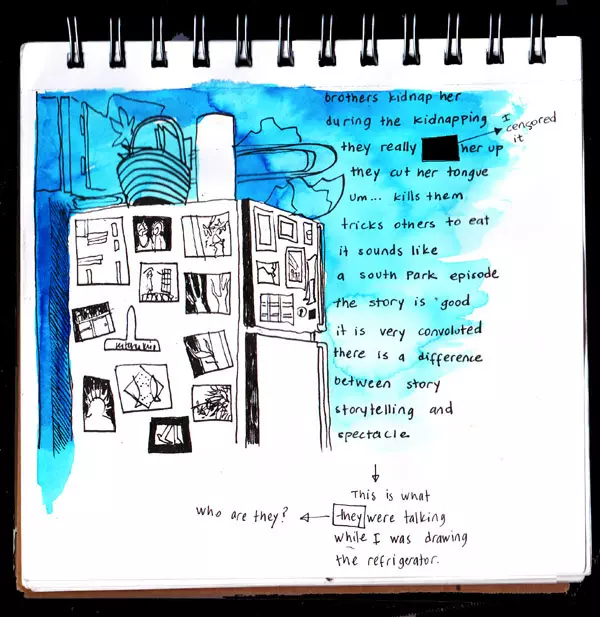 brothers kidnap her
during the kidnapping
they really her up
I
censored
it
they cut her tongue
um... kills them
tricks others to eat
it sounds like
a south park episode
the story is good
it is very convoluted
there is a difference
between story
storytelling and
spectacle
This is what
they were talking
while I was drawing
the refrigerator.
who are they?